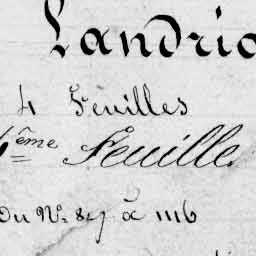 Landric
4 Feuilles
4ème Feuille
Du N° 827 à 1116